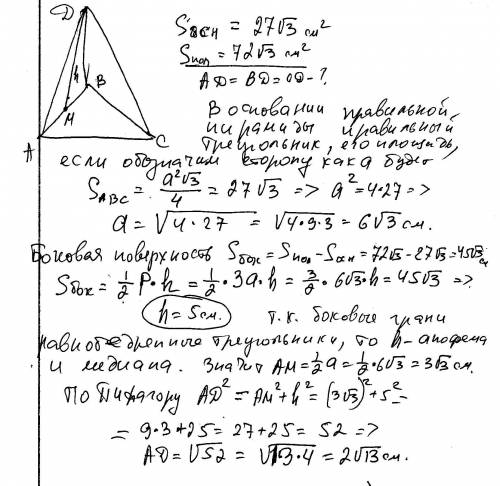 D
h
B
M
A
C
Sосн = 27√3 см²
Sпол = 72√3 см²
AD = BD = CD - ?
В основании правильной
пирамиды правильный
треугольник, его площадь,
если обозначим сторону как а будет
S_ABC = a²√3/4 = 27√3 => a² = 4·27 =>
a = √4·27 = √4·9·3 = 6√3 см.
Боковая поверхность Sбок = Sпол - Sосн = 72√3 - 27√3 = 45√3 см
Sбок = 1/2 P·h = 1/2·3a·h = 3/2·6√3·h = 45√3 =>
h = 5 см. т.к. боковые грани
равнобедренные треугольники, то h - апофема
и медиана. Значит AM = 1/2 a = 1/2·6√3 = 3√3 см.
По Пифагору AD² = AM² + h² = (3√3)² + 5² =
= 9·3 + 25 = 27 + 25 = 52 =>
AD = √52 = √13·4 = 2√13 см.